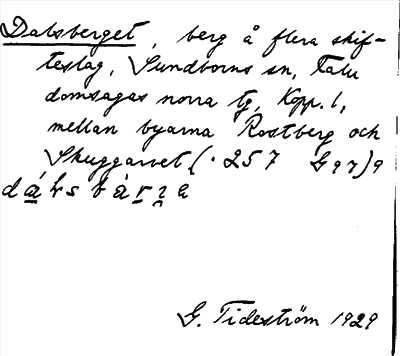 Dalsberget, berg å flera skif-
teslag, Sundborns sn, Falu
domsagas norra tg, Kopp. l,
mellan byarna Rostberg och
Skuggarvet (· 257 G 97) 9
G. Tideström 1929